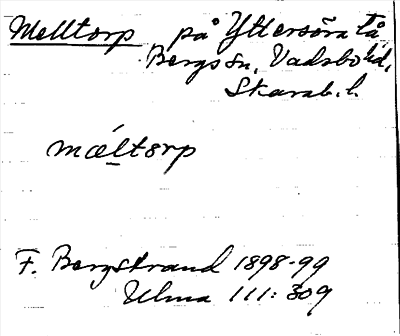 Melltorp på Yttersöra tå,
Bergs sn, Vadsbo hd,
Skarab. l.
mǽltorp
F. Bergstrand 1898-99
Ulma 111: 309